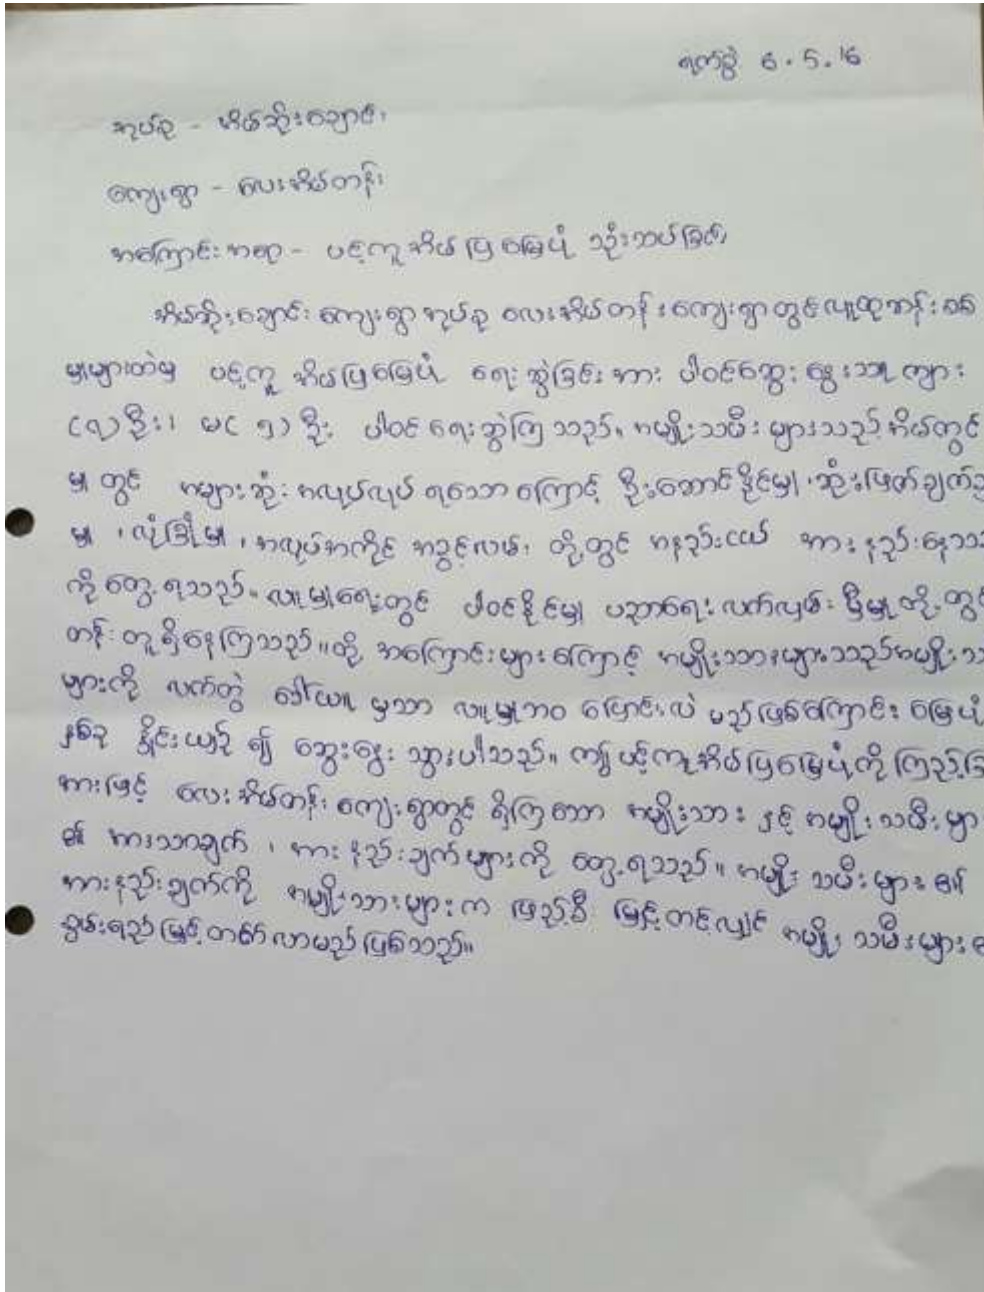 ရက်စွဲ 6.5.16
အုပ်စု - အိမ်ဆိုးချောင်း
ကျေးရွာ - လေးအိမ်တန်း
အကြောင်းအရာ - ပင့်ကူအိမ်ပြမြေပုံ သုံးသပ်ခြင်း
အိမ်ဆိုးချောင်း ကျေးရွာအုပ်စု လေးအိမ်တန်းကျေးရွာတွင် လူထုဆန်းစစ်
မှုများထဲမှ ပင့်ကူအိမ်ပြမြေပုံ ရေးဆွဲခြင်းအား ပါဝင်ဆွေးနွေးသူ ကျား
(၇) ဦး၊ မ( ၅) ဦး ပါဝင်ရေးဆွဲကြသည်။ အမျိုးသမီးများသည် အိမ်တွင်
မှုတွင် အများဆုံး အလုပ်လုပ်ရသောကြောင့် ဦးဆောင်နိုင်မှု၊ ဆုံးဖြတ်ချက်
မှု ၊ လုံခြုံမှု ၊ အလုပ်အကိုင် အခွင့်လမ်း တို့တွင် အနည်းငယ် အားနည်းနေသ
ကို တွေ့ရသည်။ လူမှုရေးတွင် ပါဝင်နိုင်မှု ပညာရေး လက်လှမ်းမှီမှု တို့တွင်
တန်းတူရှိနေကြသည်။ ထို့အကြောင်းများကြောင့် အမျိုးသားများသည် အမျိုးသ
များကို လက်တွဲ ခေါ်ယူမှသာ လူမှုဘဝ ပြောင်းလဲမည်ဖြစ်ကြောင်း မြေပုံ
နှစ်ခု နှိုင်းယှဉ်၍ ဆွေးနွေးသွားပါသည်။ ဤပင့်ကူအိမ်ပြမြေပုံကို ကြည့်ခြ
အားဖြင့် လေးအိမ်တန်းကျေးရွာတွင် ရှိကြသော အမျိုးသား နှင့် အမျိုးသမီးမျာ
၏ အားသာချက် ၊ အားနည်းချက်များကို တွေ့ရသည်။ အမျိုးသမီးများ၏
အားနည်းချက်ကို အမျိုးသားများက ဖြည့်စီမြှင့်တင်လျှင် အမျိုးသမီးများ
စွမ်းရည်မြှင့်တင်လာမည်ဖြစ်သည်။